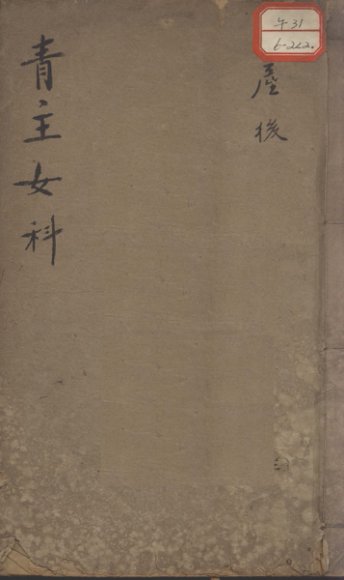 午31
6-222.
產後
青主女科